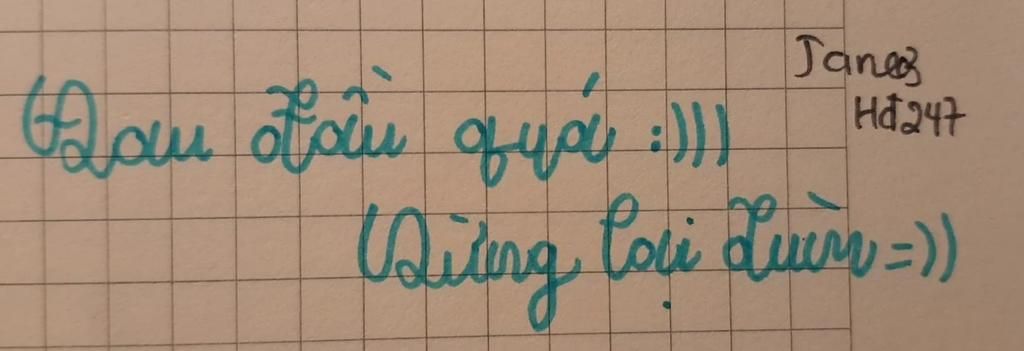 Đau đầu quá :)))
Dừng lại đuề =))
Janes
Hđ247